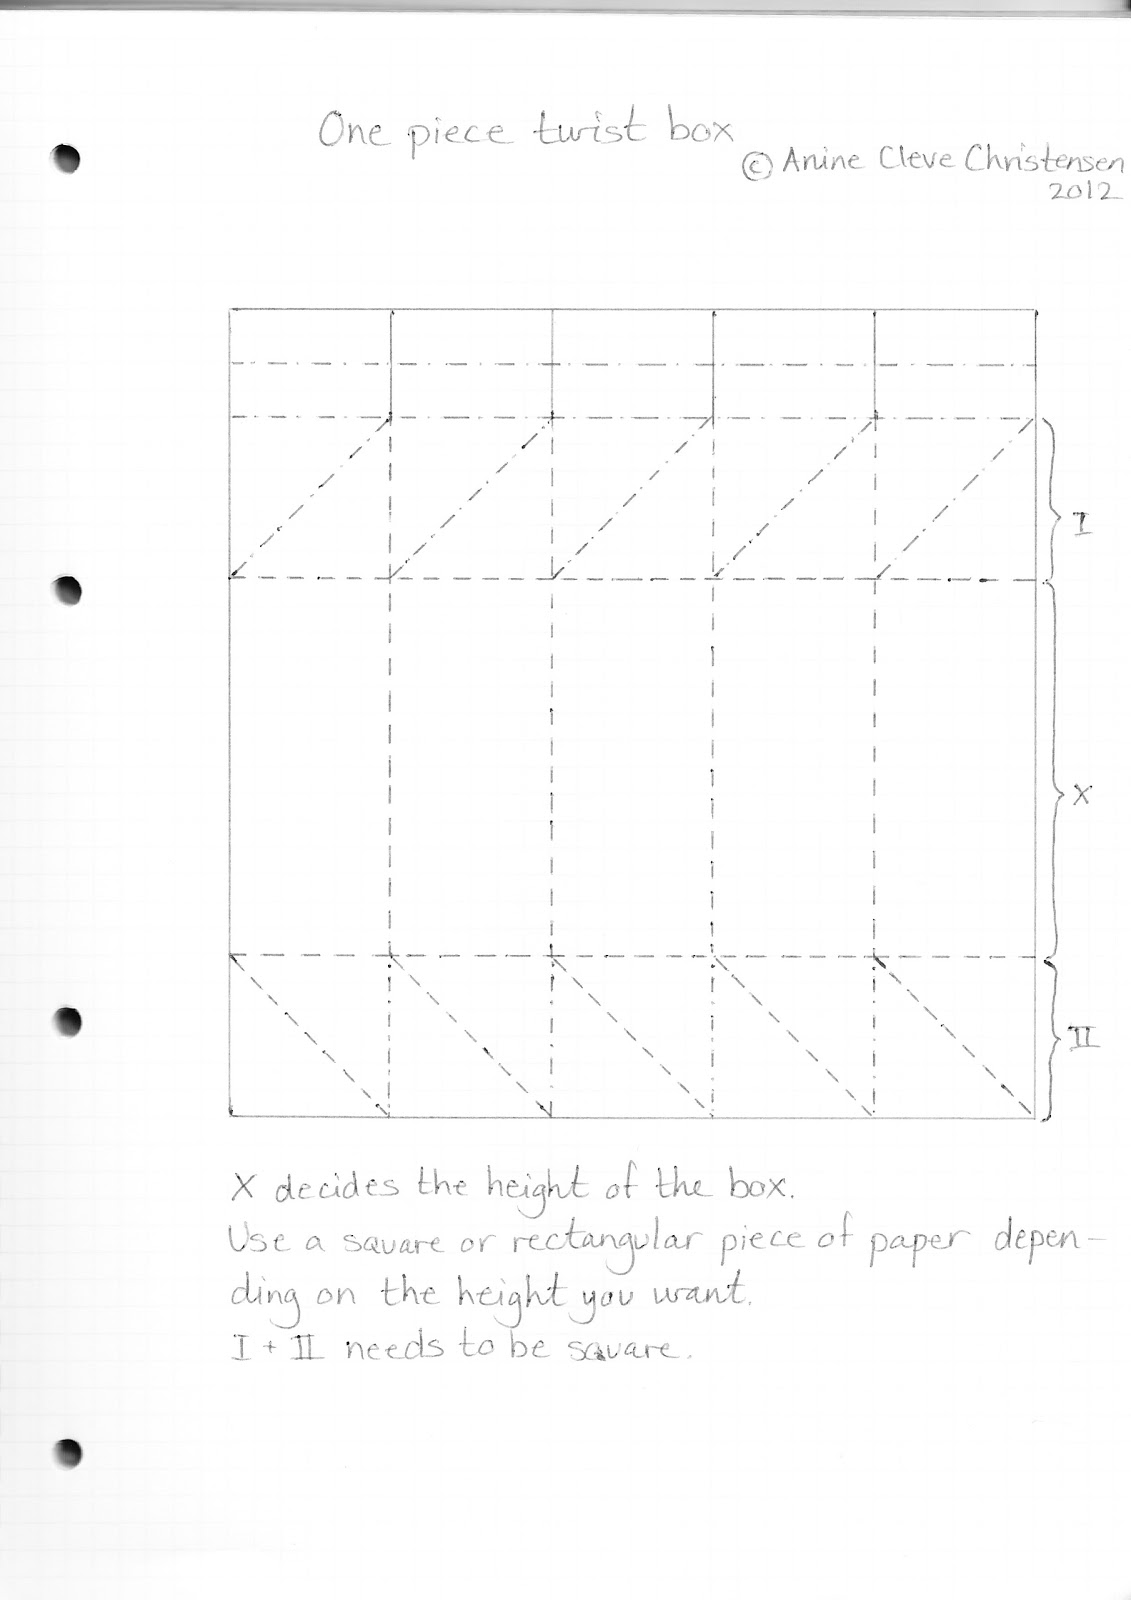 One piece twist box
© Anine Cleve Christensen
2012
I
X
II
X decides the height of the box.
Use a square or rectangular piece of paper depen-
ding on the height you want.
I + II needs to be square.